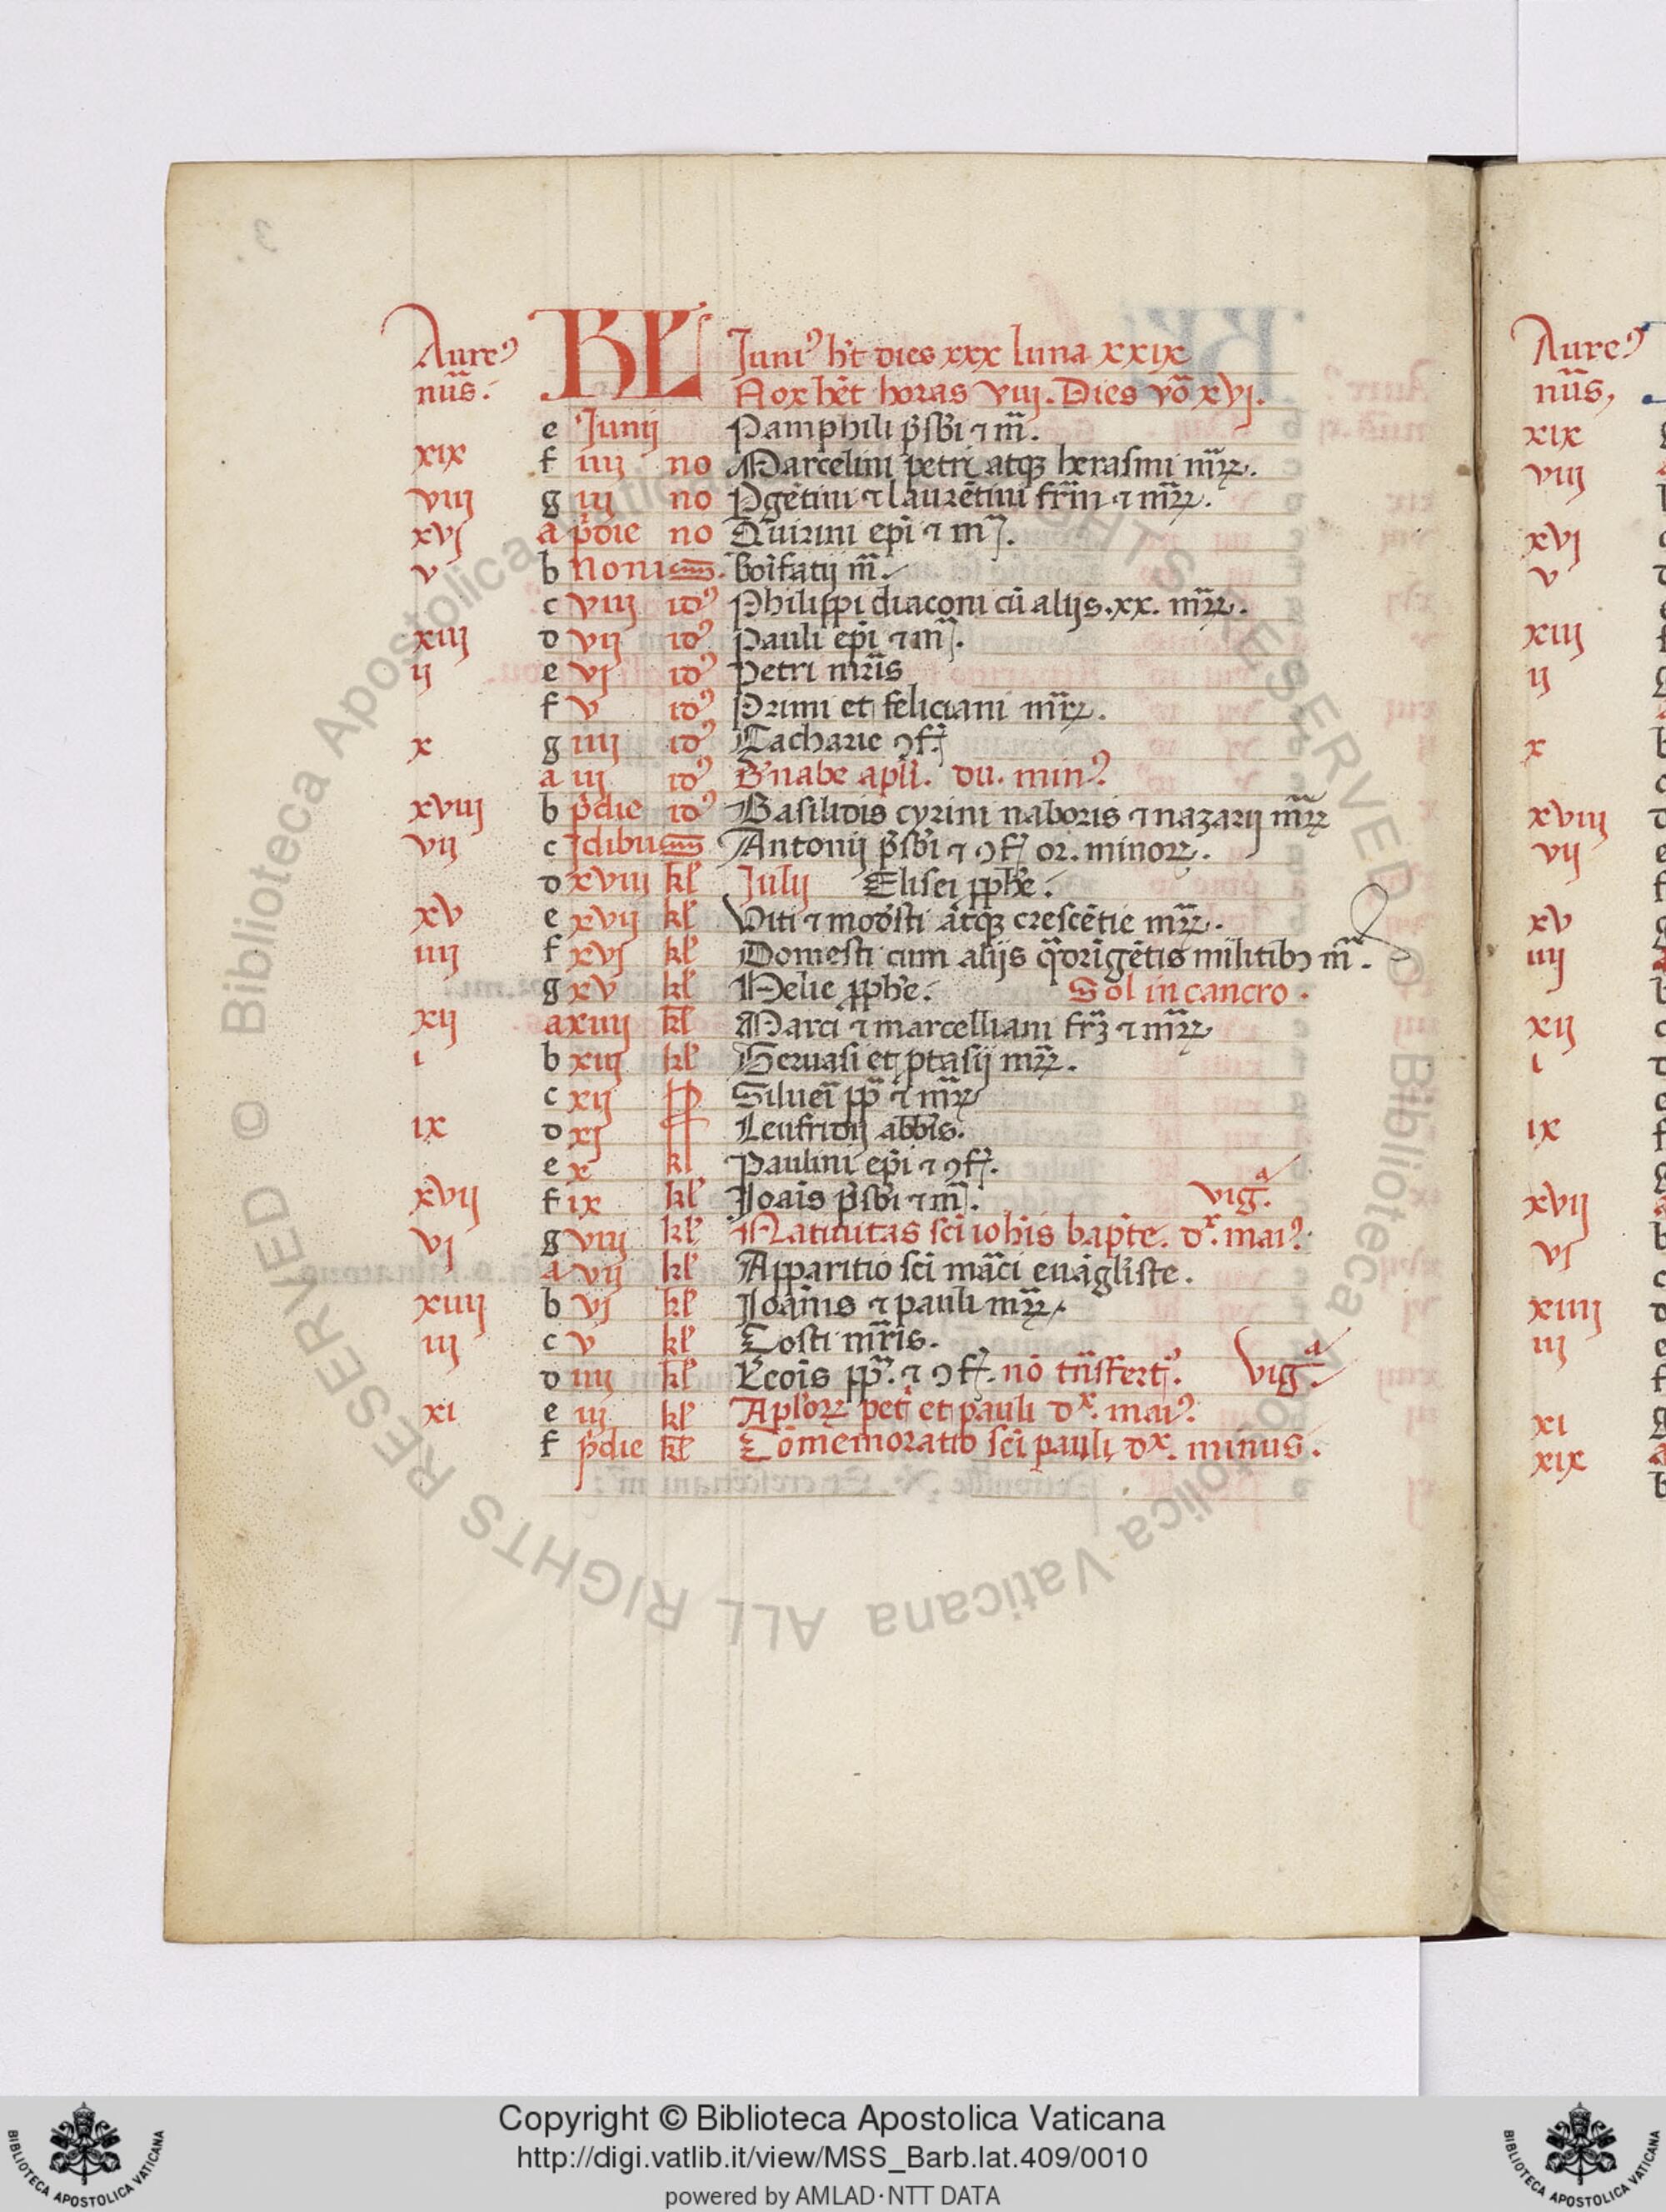 Aure⁹ KL Juni⁹ h̄t dies xxx luna xxix
nūs. Nox hēt horas viij. Dies vō xvj.
e Junij Pamphili p̄sb̄i ⁊ m̄.
xix f iiij no Marcelini petri atqꝫ herasmi mr̄ꝝ.
viij g iij no Pgētini ⁊ laurētini fr̄m ⁊ mr̄ꝝ.
xvj a p̄die no Quirini ep̄i ⁊ m̄.
v b noni boīfatij m̄.
c viij id⁹ Philippi diaconi cū alijs .xx. mr̄ꝝ.
xiij d vij id⁹ Pauli ep̄i ⁊ m̄.
ij e vj id⁹ Petri mr̄is
f v id⁹ Primi et feliciani mr̄ꝝ.
x g iiij id⁹ Zacharie ꝯf.
a iij id⁹ B'nabe apl̄i. du. min⁹.
xviij b p̄die id⁹ Basilidis cyrini naboris ⁊ nazarij mr̄ꝝ
vij c Idibu Antonij p̄sb̄i ⁊ ꝯf or. minoꝝ.
d xviij kl̄ Julij Elisei ꝓphē.
xv e xvij kl̄ Viti ⁊ modēsti atqꝫ crescētie mr̄ꝝ.
iiij f xvj kl̄ Domesti cum alijs q̄drīgētis militibꝫ m̄.
g xv kl̄ Helie ꝓphē. Sol in cancro.
xij a xiiij kl̄ Marci ⁊ marcelliani fr̄ꝫ ⁊ mr̄ꝝ
i b xiij kl̄ Geruasi et ꝓtasij mr̄ꝝ.
c xij Siluei pp̄ ⁊ mr̄ꝝ
ix d xj Leufridij abb̄is.
e x kl Paulini ep̄i ⁊ ꝯf.
xvij f ix kl̄ Joāis p̄sb̄i ⁊ m̄. vigᵃ.
vj g viij kl̄ Natiuitas sc̄i ioh̄is bapt̄e. dˣ. mai⁹.
a vij kl̄ Apparitio sc̄i māci euāgliste.
xiiij b vj kl̄ Joānis ⁊ pauli mr̄ꝝ.
iij c v kl̄ Zosti mr̄is.
d iiij kl̄ Leōis pp̄. ⁊ ꝯf. nō trn̄ffert⁹. vigᵃ.
xi e iij kl̄ Apl̄oꝝ pet̄ et pauli dˣ. mai⁹.
f p̄die kl̄ Cōmemoratio sc̄i pauli dˣ. minus.
Aure⁹
nūs,
xix
viij
xvj
v
xiij
ij
x
xviij
vij
xv
iiij
xij
i
ix
xvij
vj
xiiij
iij
xi
xix
Copyright © Biblioteca Apostolica Vaticana
http://digi.vatlib.it/view/MSS_Barb.lat.409/0010
powered by AMLAD·NTT DATA